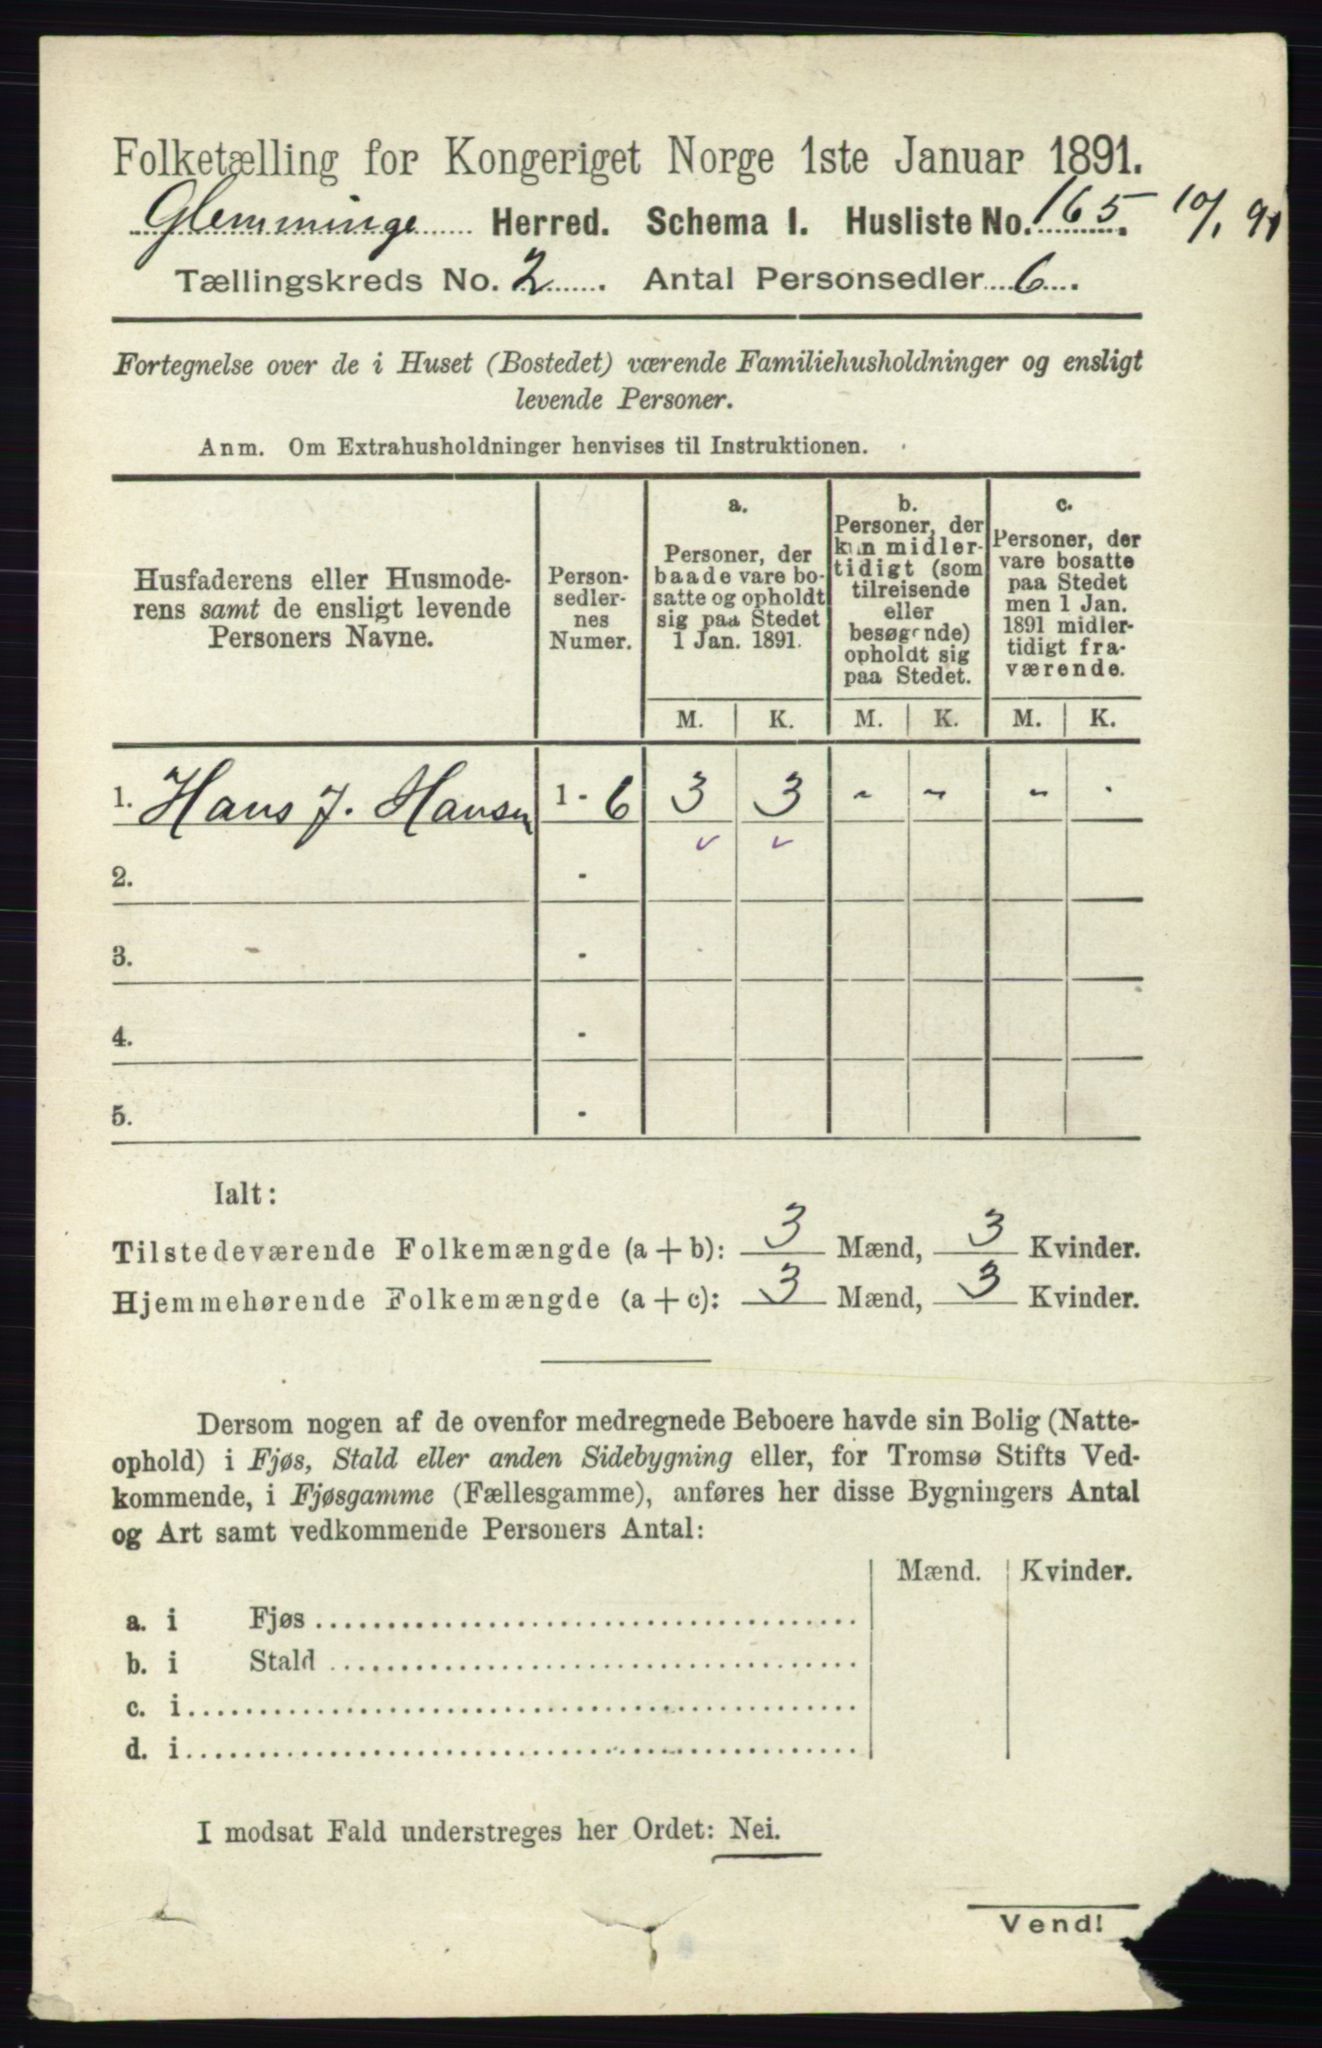 Folketælling for Kongeriget Norge 1ste Januar 1891.
Glemminge Herred. Schema I. Husliste No. 165. 10/1 91
Tællingskreds No. 2. Antal Personsedler 6.
Fortegnelse over de i Huset (Bostedet) værende Familiehusholdninger og ensligt
levende Personer.
Anm. Om Extrahusholdninger henvises til Instruktionen.
Husfaderens eller Husmode-
rens samt de ensligt levende
Personers Navne.
Person-
sedler-
nes
Numer.
a.
Personer, der
baade vare bo-
satte og opholdt
sig paa Stedet
1 Jan. 1891.
b.
Personer, der
kun midler-
tidigt (som
tilreisende
eller
besøgende)
opholdt sig
paa Stedet.
c.
Personer, der
vare bosatte
paa Stedet
men 1 Jan.
1891 midler-
tidigt fra-
værende.
M. K. M. K. M. K.
1. Hans J. Hansen 1 - 6 3 3 - - - -
2. -
3. -
4. -
5. -
Ialt:
Tilstedeværende Folkemængde (a + b): 3 Mænd, 3 Kvinder.
Hjemmehørende Folkemængde (a + c): 3 Mænd, 3 Kvinder.
Dersom nogen af de ovenfor medregnede Beboere havde sin Bolig (Natte-
ophold) i Fjøs, Stald eller anden Sidebygning eller, for Tromsø Stifts Ved-
kommende, i Fjøsgamme (Fællesgamme), anføres her disse Bygningers Antal
og Art samt vedkommende Personers Antal:
Mænd. Kvinder.
a. i Fjøs
b. i Stald
c. i
d. i
I modsat Fald understreges her Ordet: Nei.
Vend!